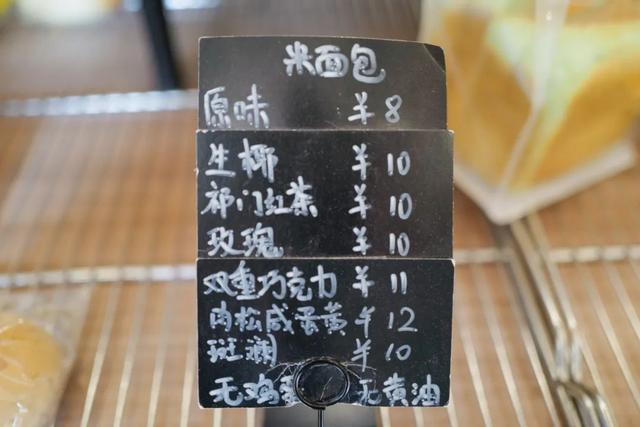 米面包
原味 ¥8
生椰 ¥10
祁门红茶 ¥10
玫瑰 ¥10
双重巧克力 ¥11
肉松咸蛋黄 ¥12
斑斓 ¥10
无鸡蛋 无黄油